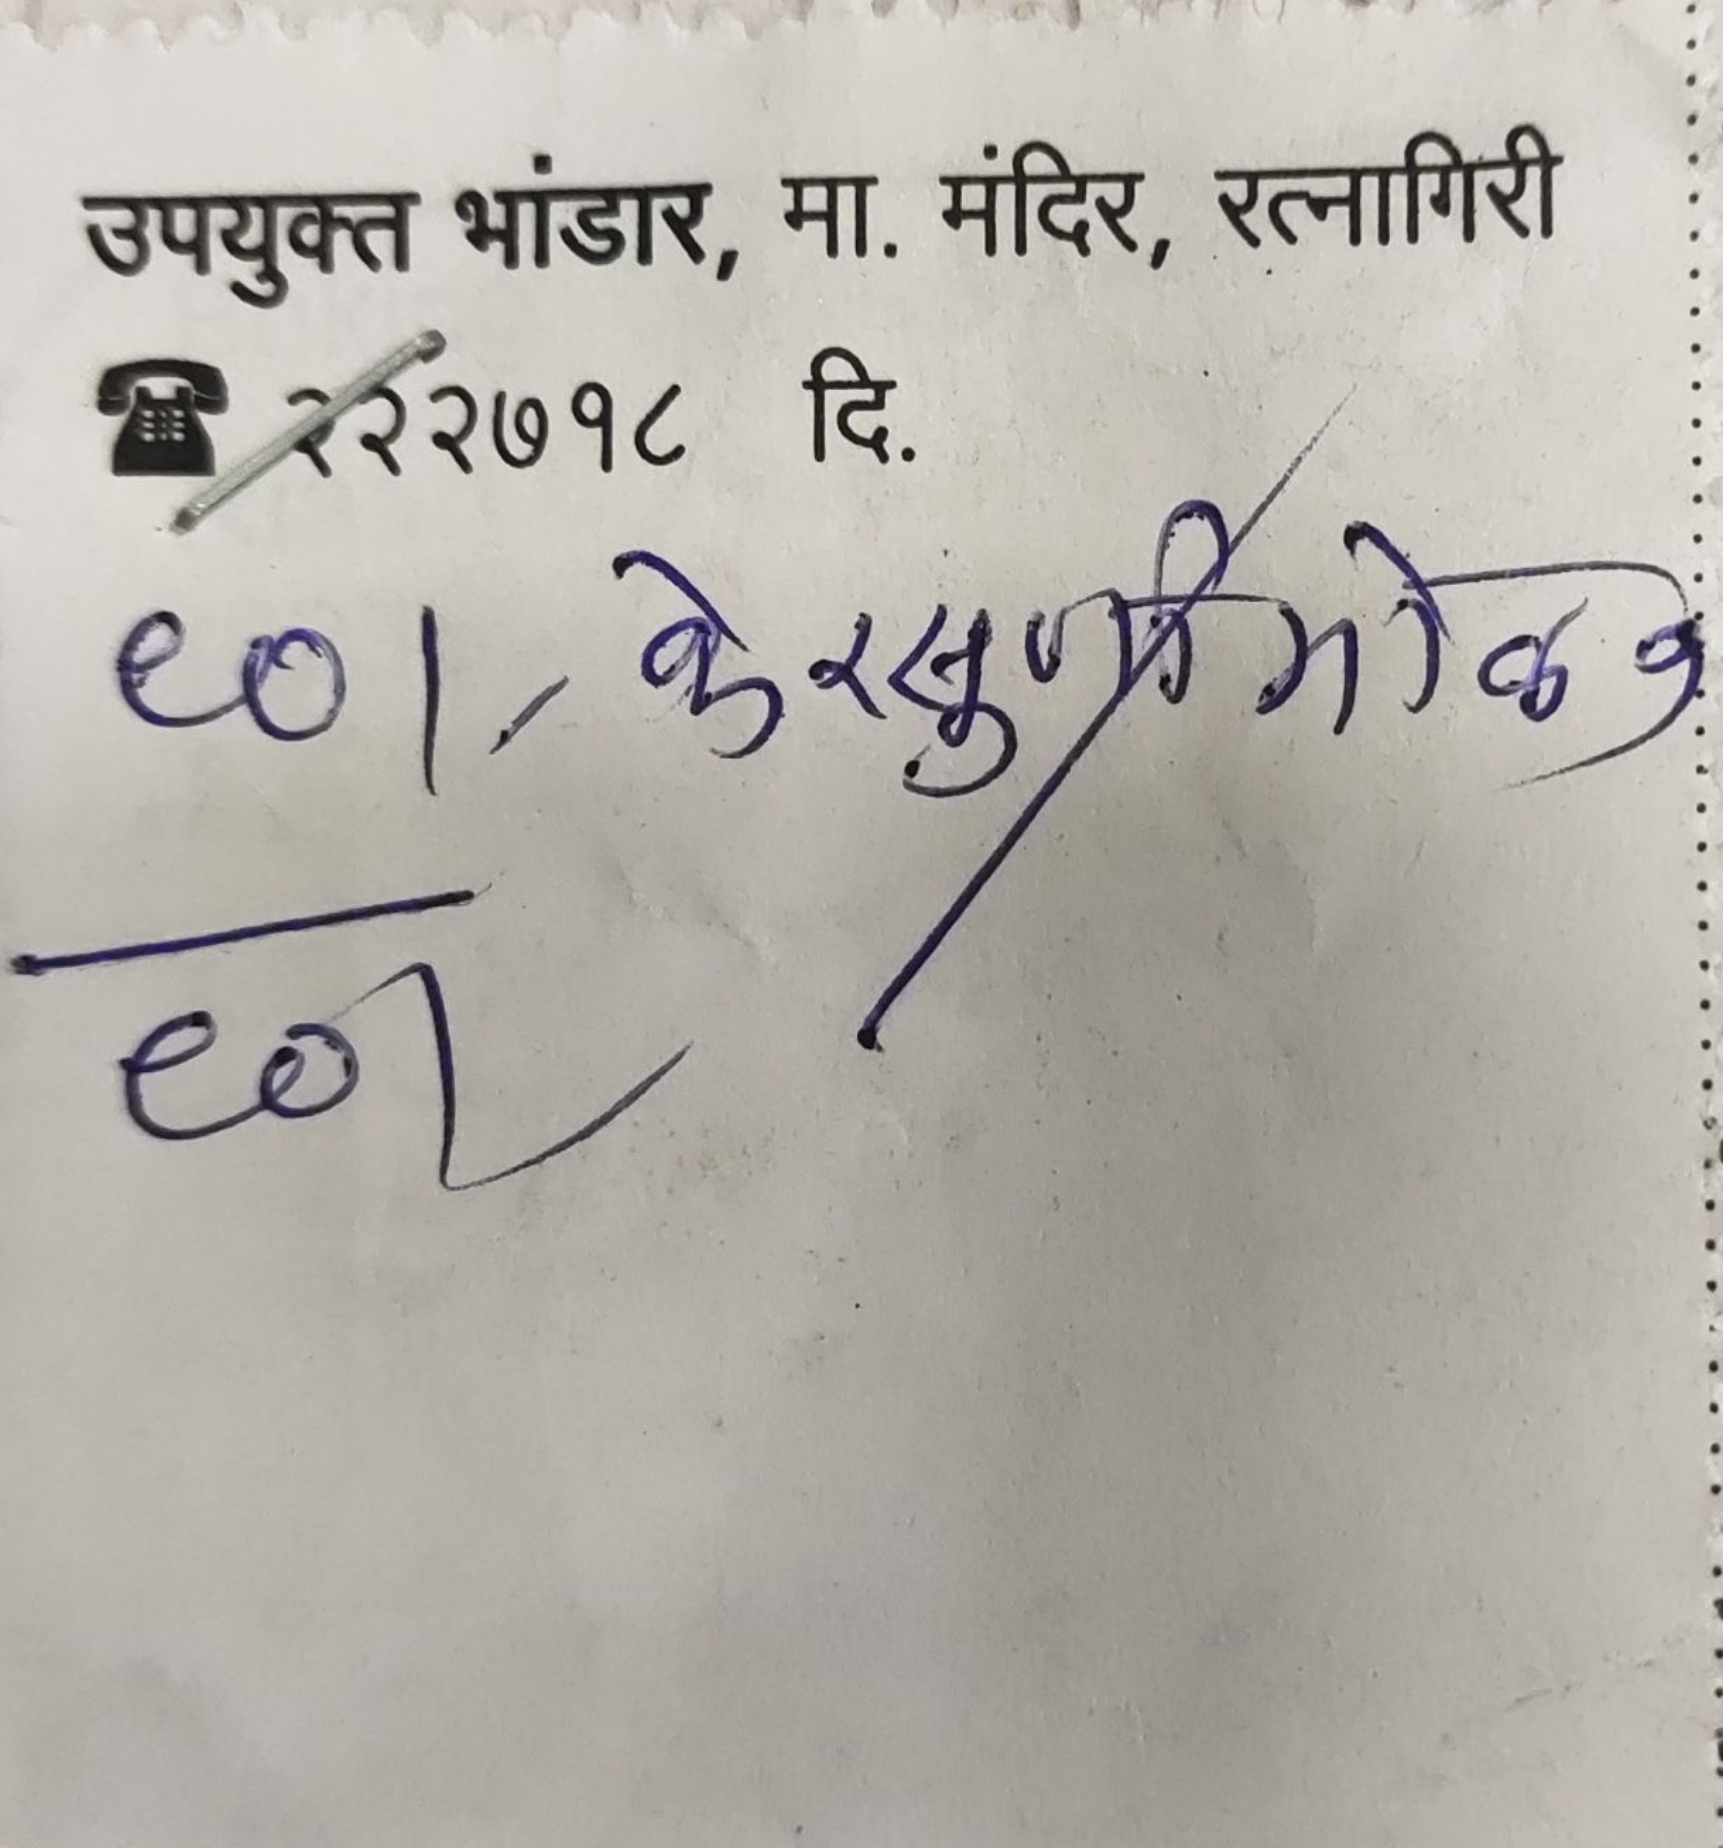 उपयुक्त भांडार, मा. मंदिर, रत्नागिरी
☎ २२२७१८ दि.
९०।- केरसुणी मोळ १
९०